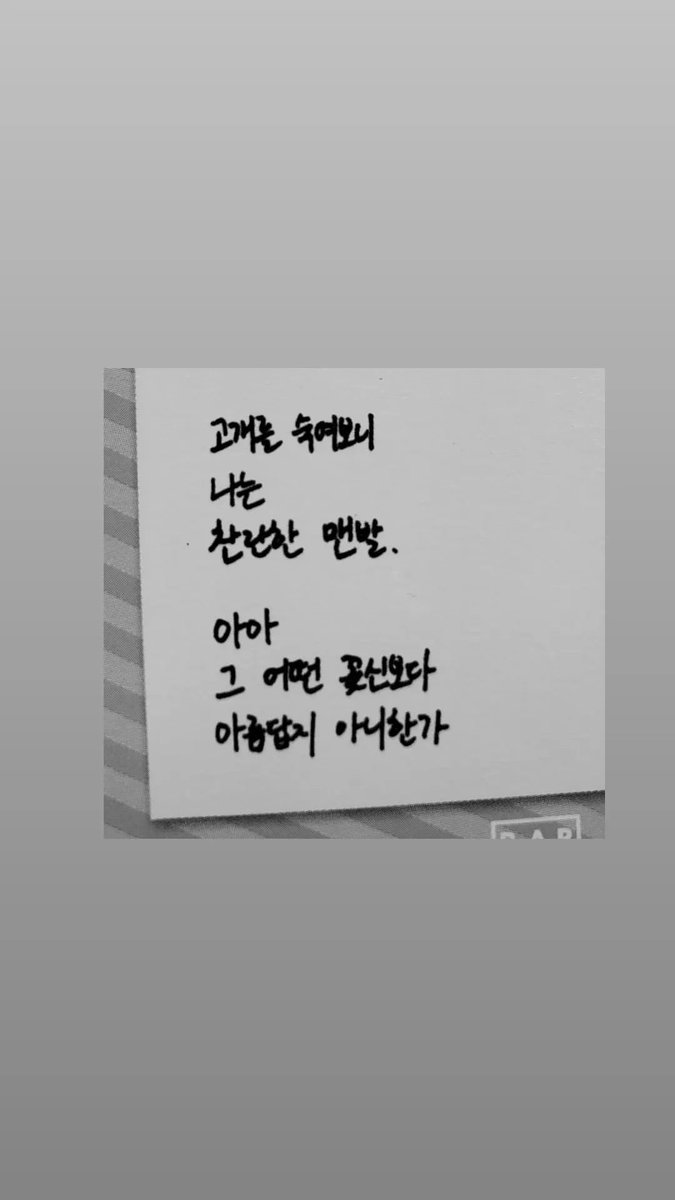 고개를 숙여보니
나는
찬란한 맨발.
아아
그 어떤 꽃신보다
아름답지 아니한가